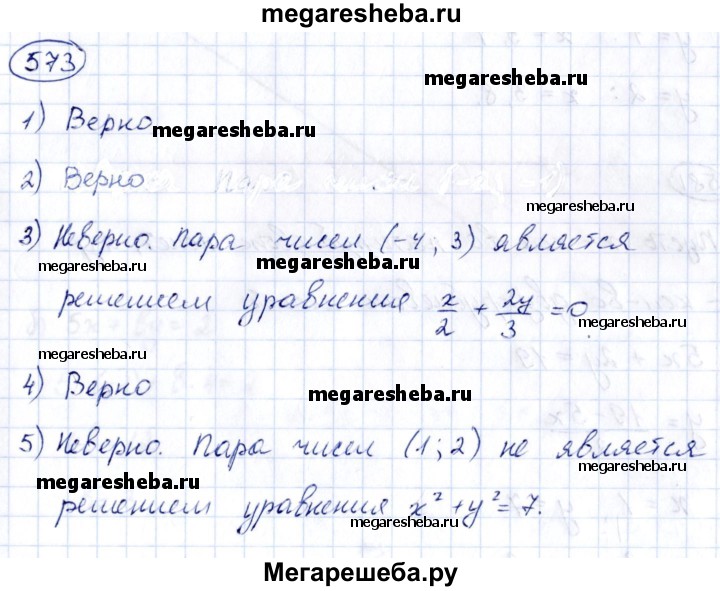 megaresheba.ru
573
megaresheba.ru
1) Верно
megaresheba.ru
2) Верно
megaresheba.ru
3) Неверно. Пара чисел (-4; 3) является
megaresheba.ru
megaresheba.ru
решением уравнения x/2 + 2y/3 = 0
megaresheba.ru
megaresheba.ru
4) Верно
megaresheba.ru
5) Неверно. Пара чисел (1; 2) не является
megaresheba.ru
megaresheba.ru
решением уравнения x² + y² = 7.
megaresheba.ru
Мегарешеба.ру